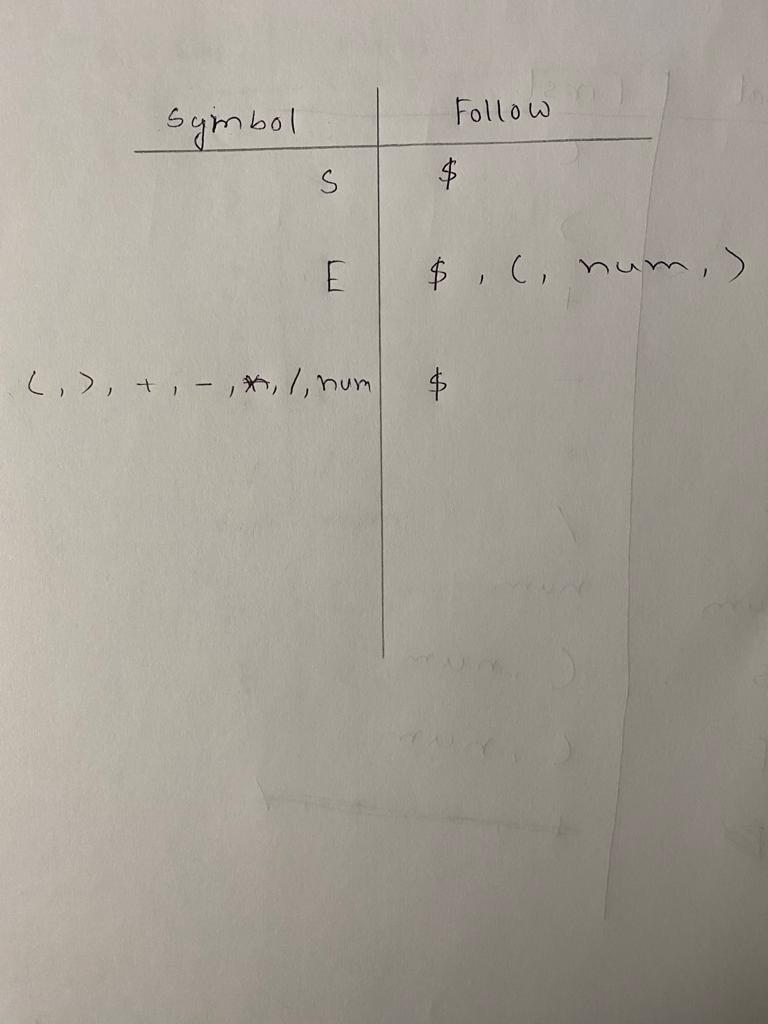 Symbol Follow
S $
E $ , (, num, )
(, ), +, -, *, /, num $